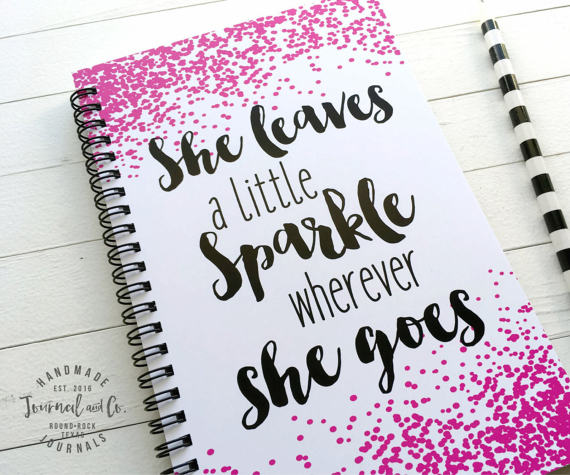 She leaves
a little
Sparkle
wherever
she goes
HANDMADE
EST. 2016
Journal and Co.
ROUND-ROCK
TEXAS
JOURNALS